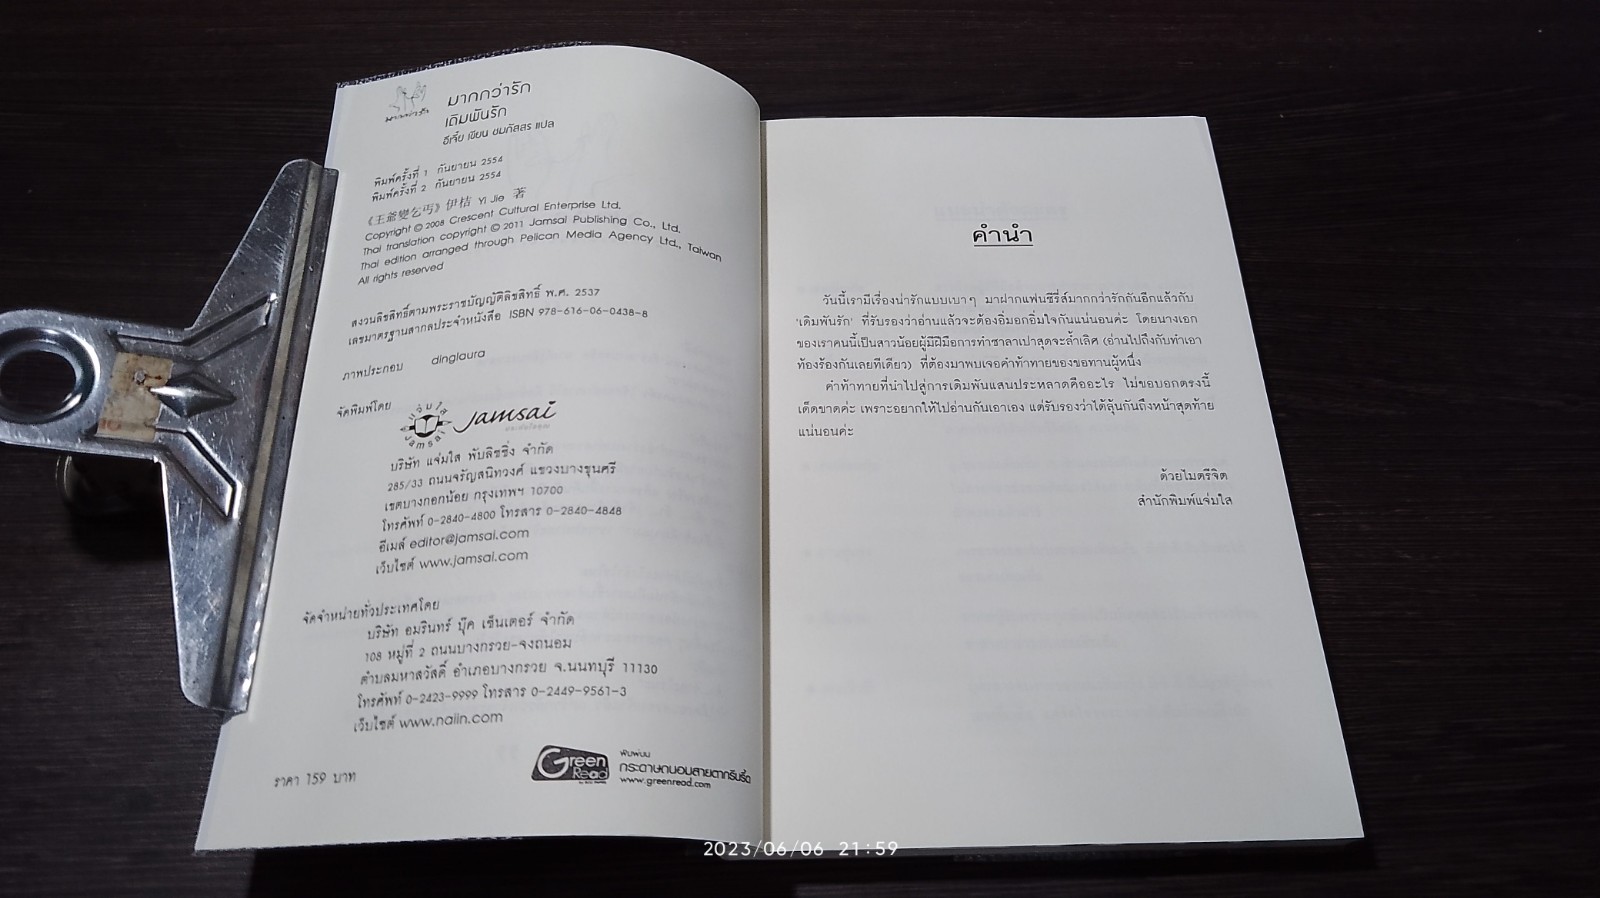 มากกว่ารัก
มากกว่ารัก
เดิมพันรัก
อีเจี๋ย เขียน ชมภัสสร แปล
พิมพ์ครั้งที่ 1 กันยายน 2554
พิมพ์ครั้งที่ 2 กันยายน 2554
《王爺變乞丐》伊桔 Yi Jie 著
Copyright © 2008 Crescent Cultural Enterprise Ltd.
Thai translation copyright © 2011 Jamsai Publishing Co., Ltd.
Thai edition arranged through Pelican Media Agency Ltd., Taiwan
All rights reserved
สงวนลิขสิทธิ์ตามพระราชบัญญัติลิขสิทธิ์ พ.ศ. 2537
เลขมาตรฐานสากลประจำหนังสือ ISBN 978-616-06-0438-8
ภาพประกอบ dinglaura
จัดพิมพ์โดย
แจ่มใส Jamsai Jamsai
บริษัท แจ่มใส พับลิชชิ่ง จำกัด
285/33 ถนนจรัญสนิทวงศ์ แขวงบางขุนศรี
เขตบางกอกน้อย กรุงเทพฯ 10700
โทรศัพท์ 0-2840-4800 โทรสาร 0-2840-4848
อีเมล์ editor@jamsai.com
เว็บไซต์ www.jamsai.com
จัดจำหน่ายทั่วประเทศโดย
บริษัท อมรินทร์ บุ๊ค เซ็นเตอร์ จำกัด
108 หมู่ที่ 2 ถนนบางกรวย-จงถนอม
ตำบลมหาสวัสดิ์ อำเภอบางกรวย จ.นนทบุรี 11130
โทรศัพท์ 0-2423-9999 โทรสาร 0-2449-9561-3
เว็บไซต์ www.naiin.com
ราคา 159 บาท
Green Read
พิมพ์บน
กระดาษถนอมสายตากรีนรี้ด
www.greenread.com
คำนำ
วันนี้เรามีเรื่องน่ารักแบบเบาๆ มาฝากแฟนซีรี่ส์มากกว่ารักกันอีกแล้วกับ
'เดิมพันรัก' ที่รับรองว่าอ่านแล้วจะต้องอิ่มอกอิ่มใจกันแน่นอนค่ะ โดยนางเอก
ของเราคนนี้เป็นสาวน้อยผู้มีฝีมือการทำซาลาเปาสุดจะล้ำเลิศ (อ่านไปถึงกับทำเอา
ท้องร้องกันเลยทีเดียว) ที่ต้องมาพบเจอคำท้าทายของขอทานผู้หนึ่ง
คำท้าทายที่นำไปสู่การเดิมพันแสนประหลาดคืออะไร ไม่ขอบอกตรงนี้
เด็ดขาดค่ะ เพราะอยากให้ไปอ่านกันเอาเอง แต่รับรองว่าได้ลุ้นกันถึงหน้าสุดท้าย
แน่นอนค่ะ
ด้วยไมตรีจิต
สำนักพิมพ์แจ่มใส
2023/06/06 21:59